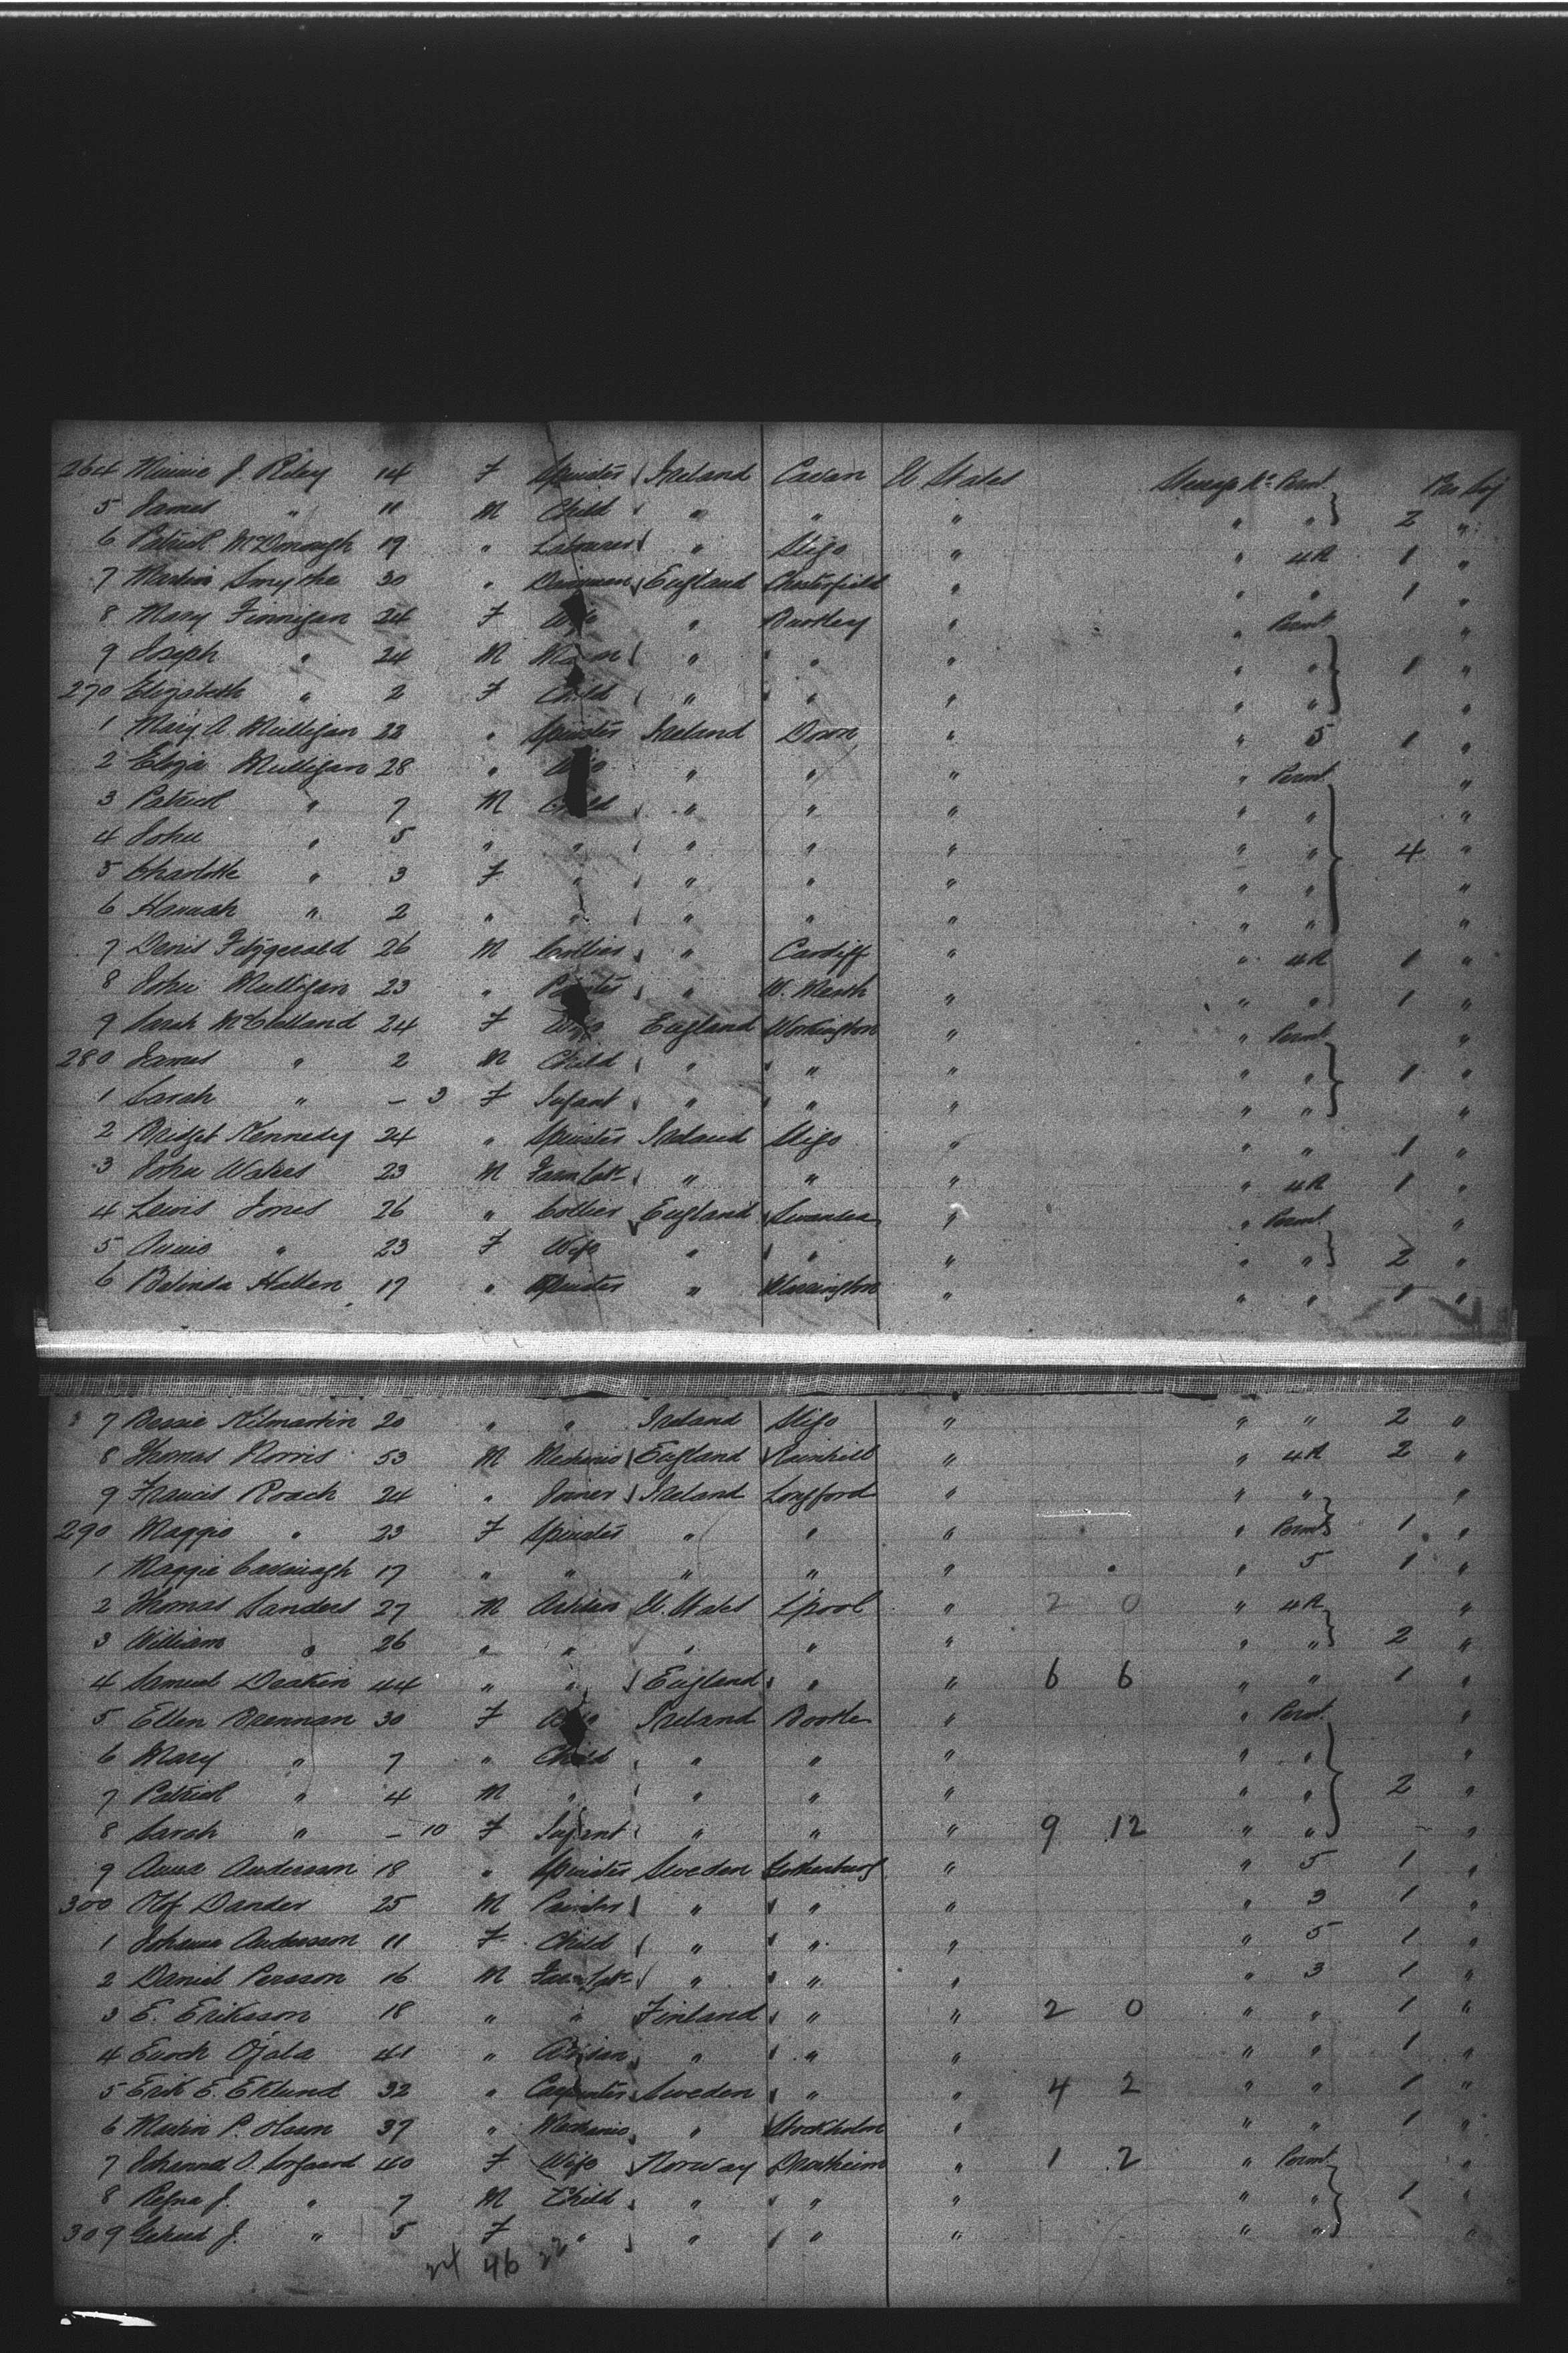 264 Minnie J. Riley 14 F Spinster Ireland Cavan U States Steerage Nº Permt Pro Soj
5 James " 11 M Child " " " " " 2 "
6 Patrick McDonough 19 " Labourer " Sligo " " 4R 1 "
7 Martin Smythe 30 " England Chesterfield " " " 1 "
8 Mary Finnigan 24 F Wife " " " Permt "
9 Joseph " 24 M " " " " " 1 "
270 Elizabeth " 2 F Child " " " " " "
1 Mary A Mulligan 22 " Spinster Ireland Down " " 5 1 "
2 Eliza Mulligan 28 " Wife " " " " Permt "
3 Patrick " 7 M Child " " " " " "
4 John " 5 " " " " " " " 4 "
5 Charlotte " 3 F " " " " " " "
6 Hannah " 2 " " " " " " " "
7 Denis Fitzgerald 26 M Collier " Cardiff " " 4R 1 "
8 John Mulligan 23 " Painter " W. Meath " " " 1 "
9 Sarah McClelland 24 F Wife England Workington " " Permt "
280 James " 2 M Child " " " " " 1 "
1 Sarah " – 3 F Infant " " " " " "
2 Bridget Kennedy 24 " Spinster Ireland Sligo " " " 1 "
3 John Waters 23 M Farm Labr " " " " 4R 1 "
4 Lewis Jones 26 " Collier England Swansea " " Permt "
5 Annie " 23 F Wife " " " " " 2 "
6 Belinda Hatten 17 " Spinster " Warrington " " " 1 "
7 Bessie Kilmartin 20 " " Ireland Sligo " " " 2 "
8 Thomas Norris 53 M Mechanic England Rainhill " " 4R 2 "
9 Francis Roach 24 " Joiner Ireland Longford " " " "
290 Maggie " 23 F Spinster " " " " Permt 1 "
1 Maggie Cavanagh 17 " " " " " " 5 1 "
2 Thomas Sanders 27 M Artisan U. States L'pool " 2 0 " 4R "
3 William " 26 " " " " " " " 2 "
4 Samuel Deakin 44 " " England " " 6 6 " " 1 "
5 Ellen Brennan 30 F Wife Ireland Bootle " " Permt "
6 Mary " 7 " Child " " " " " "
7 Patrick " 4 M " " " " " " 2 "
8 Sarah " – 10 F Infant " " " 9 12 " " – "
9 Anna Andersson 18 " Spinster Sweden Gothenburg " " 5 1 "
300 Olof Dander 25 M Painter " " " " 3 1 "
1 Johanna Andersson 11 F Child " " " " 5 1 "
2 Daniel Persson 16 M Farm Labr " " " " 3 1 "
3 E. Eriksson 18 " " Finland " " 2 0 " " 1 "
4 Enoch Ojala 41 " Artisan " " " " " 1 "
5 Erik E. Eklund 32 " Carpenter Sweden " " 4 2 " " 1 "
6 Martin P. Olsson 37 " Mechanic " Stockholm " " " 1 "
7 Johanna O. 40 F Wife Norway Drontheim " 1 2 " Permt "
8 Regna J. " 7 M Child " " " " " 1 "
309 J. " 5 F " " " " " " "
24 46 22